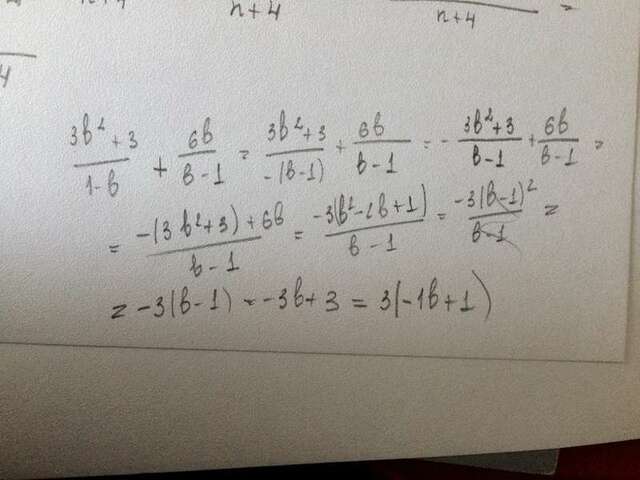 4
n+4
n+4 =
(3b²+3)/(1-b) + 6b/(b-1) = (3b²+3)/(-(b-1)) + 6b/(b-1) = - (3b²+3)/(b-1) + 6b/(b-1) =
= (-(3b²+3)+6b)/(b-1) = (-3(b²-2b+1))/(b-1) = (-3(b-1)²)/(b-1) =
= -3(b-1) = -3b+3 = 3(-1b+1)